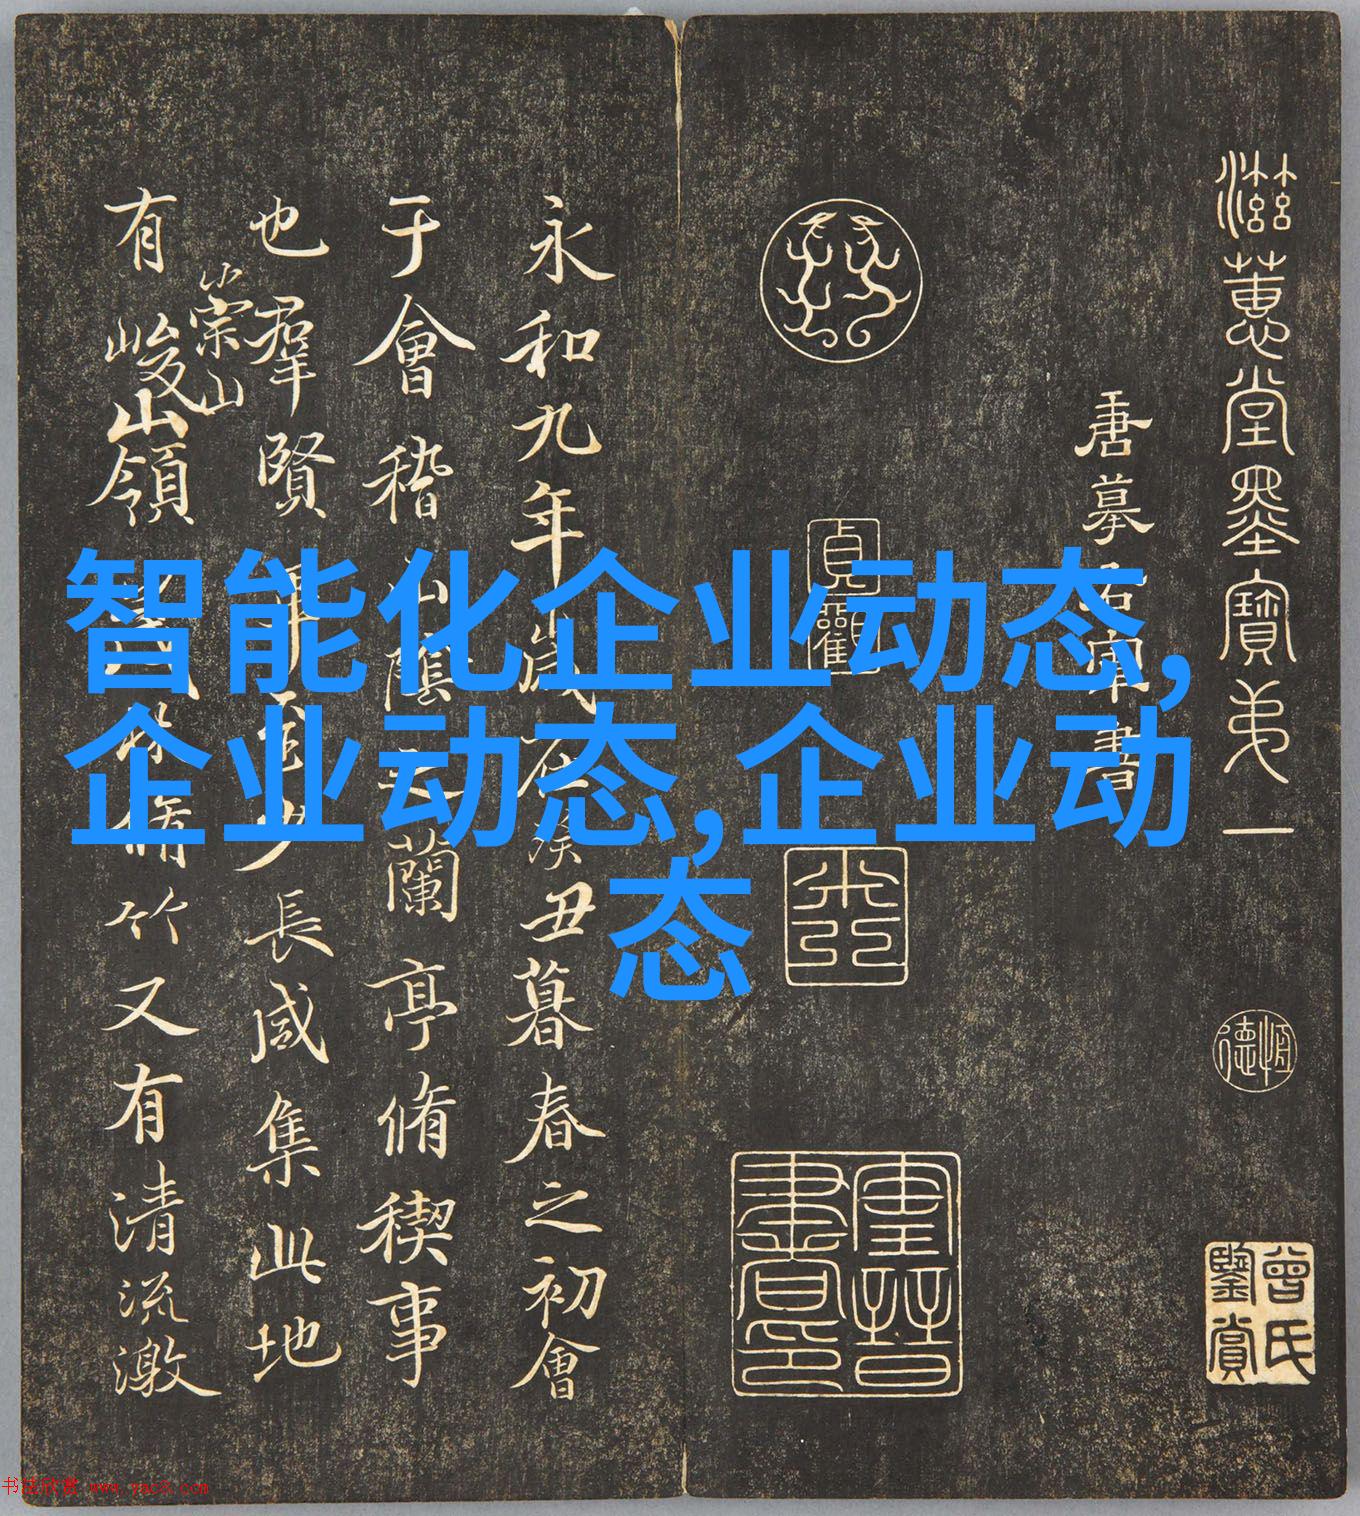 滋蕙堂墨寶弟一
唐摹右軍書
貞觀
恒德
曾氏鑒賞
永和九年歲在癸丑暮春之初會
于會稽山陰之蘭亭脩稧事
也羣賢畢至少長咸集此地
有崇山峻領茂林脩竹又有清流激
智能化企业动态,
企业动态,企业动
态
书法欣赏 www.yac8.com